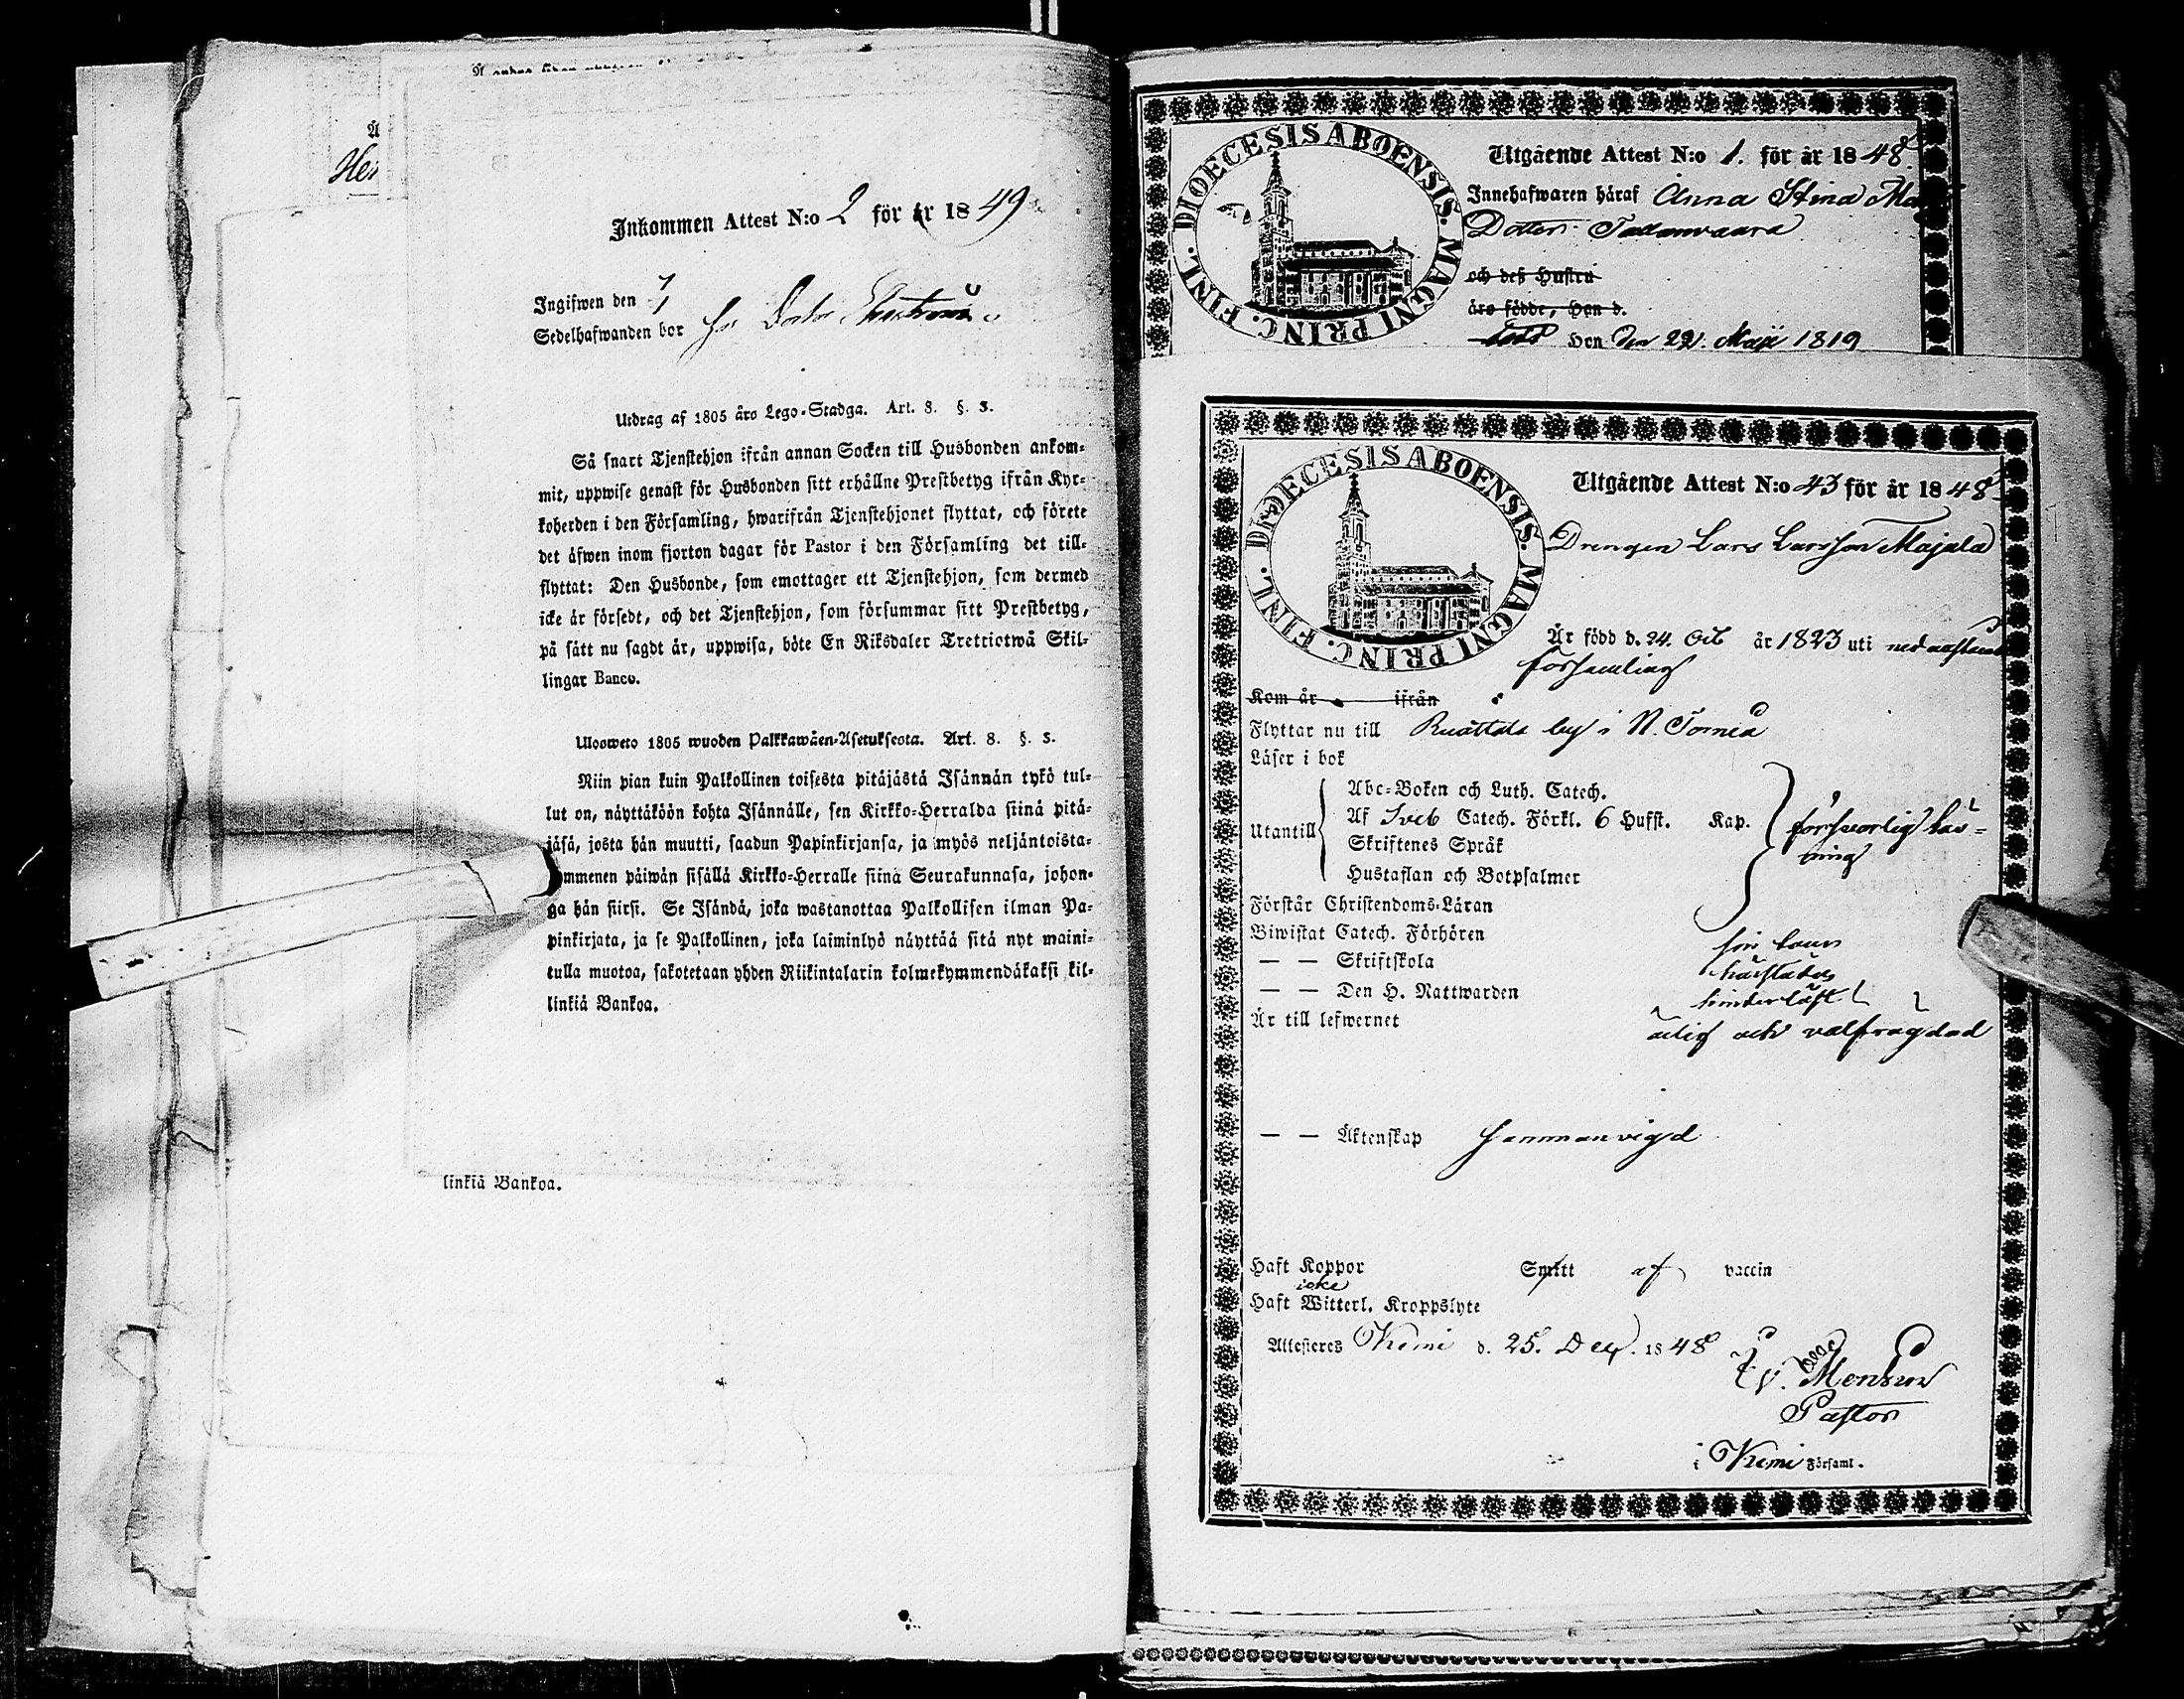 Å
Hen
Inkommen Attest N:o 2 för år 1849
Ingifwen den
Sedelhafwanden bor hos
Utdrag af 1805 års Lego-Stadga. Art. 8. §. 3.
Så snart Tjenstehjon ifrån annan Socken till Husbonden ankom-
mit, uppwise genast för Husbonden sitt erhållne Prestbetyg ifrån Kyr-
koherden i den Församling, hwarifrån Tjenstehjonet flyttat, och förete
det äfwen inom fjorton dagar för Pastor i den Församling det till-
flyttat: Den Husbonde, som emottager ett Tjenstehjon, som dermed
icke är försedt, och det Tjenstehjon, som försummar sitt Prestbetyg,
på sätt nu sagdt är, uppwisa, böte En Riksdaler Trettiotwå Skil-
lingar Banco.
Ulosweto 1805 wuoden Palkkawäen-Asetuksesta. Art. 8. §. 3.
Niin pian kuin Palkollinen toisesta pitäjästä Isännän tykö tul-
lut on, näyttäköön kohta Isännälle, sen Kirkko-Herralda siinä pitä-
jäsä, josta hän muutti, saadun Papinkirjansa, ja myös neljäntoista-
kymmenen päiwän sisällä Kirkko-Herralle siinä Seurakunnasa, johon-
ga hän siirsi. Se Isändä, joka wastanottaa Palkollisen ilman Pa-
pinkirjata, ja se Palkollinen, joka laiminlyö näyttää sitä nyt maini-
tulla muotoa, sakotetaan yhden Riikintalarin kolmekymmendäkaksi kil-
linkiä Bankoa.
linkiä Bankoa.
DIOECESIS ABOENSIS. MAGNI PRINC. FINL.
Utgående Attest N:o 1. för år 1848
Innehafwaren häraf Anna Stina
Dotter
och deß Hustru
äro födde, Han d.
Hon den 22. Maji 1819
DIOECESIS ABOENSIS. MAGNI PRINC. FINL.
Utgående Attest N:o 43 för år 1848
Drengen Lars Larsson Majala
Är född d. 24. Oct år 1823 uti nedanstående
församling
Kom år ifrån
Flyttar nu till by i N. Torneå
Läser i bok
Utantill
Abc-Boken och Luth. Catech.
Af Sveb Catech. Förkl. 6 Hufst. Kap.
Skriftenes Språk
Hustaflan och Botpsalmer
försvarlig läs-
ning
Förstår Christendoms-Läran
Biwistat Catech. Förhören
— — Skriftskola
— — Den H. Nattwarden
Är till lefwernet
ärlig och välfrägdad
— — Äktenskap sammanvigd
Haft Koppor Smitt af vaccin
icke
Haft Witterl. Kroppslyte
Attesteres Kemi d. 25. Dec. 1848
Pastor
i Kemi Församl.